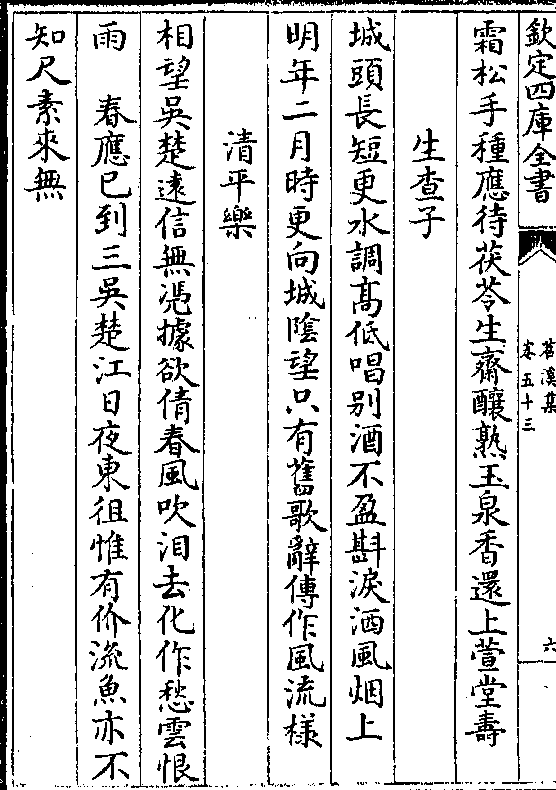 欽定四庫全書
苕溪集
卷五十三
六
霜松手種應待茯苓生齋釀熟玉泉香還上萱堂壽
生查子
城頭長短更水調髙低唱别酒不盈斟淚洒風烟上
明年二月時更向城陰望只有舊歌辭傳作風流様
清平樂
相望吳楚逺信無憑據欲倩春風吹泪去化作愁雲恨
雨 春應已到三吳楚江日夜東徂惟有價流魚亦不
知尺素來無